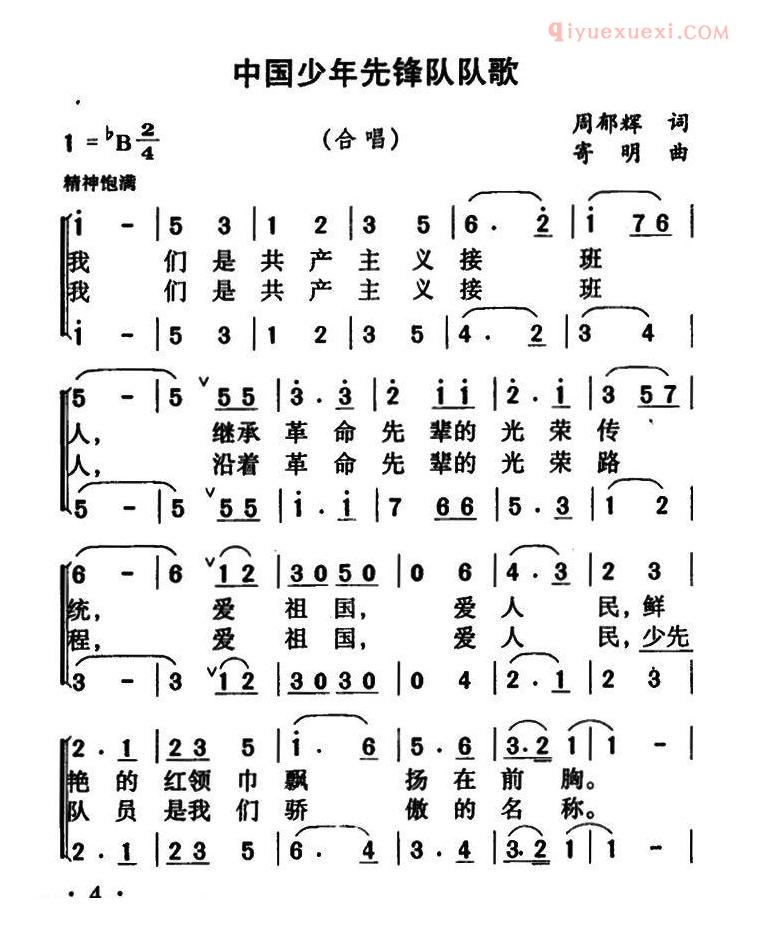 qiyuexuexi.COM
中国少年先锋队队歌
1 = ♭B 2/4 （合 唱） 周郁辉 词
寄 明 曲
精神饱满
i - | 5 3 | 1 2 | 3 5 | 6 . 2̇ | i 7 6 |
我 们 是 共 产 主 义 接 班
我 们 是 共 产 主 义 接 班
i - | 5 3 | 1 2 | 3 5 | 4 . 2 | 3 4 |
5 - | 5 ∨ 5 5 | 3̇ . 3̇ | 2̇ i i | 2̇ . i | 3 5 7 |
人， 继承 革 命 先 辈的 光 荣 传
人， 沿着 革 命 先 辈的 光 荣 路
5 - | 5 ∨ 5 5 | i . i | 7 6 6 | 5 . 3 | 1 2 |
6 - | 6 ∨ 1 2 | 3 0 5 0 | 0 6 | 4 . 3 | 2 3 |
统， 爱 祖 国， 爱 人 民，鲜
程， 爱 祖 国， 爱 人 民，少先
3 - | 3 ∨ 1 2 | 3 0 3 0 | 0 4 | 2 . 1 | 2 3 |
2 . 1 | 2 3 5 | i . 6 | 5 . 6 | 3 . 2 1 | 1 - |
艳 的 红领 巾 飘 扬 在 前 胸。
队 员 是我 们 骄 傲 的 名 称。
2 . 1 | 2 3 5 | 6 . 4 | 3 . 4 | 3 . 2 1 | 1 - |
· 4 ·